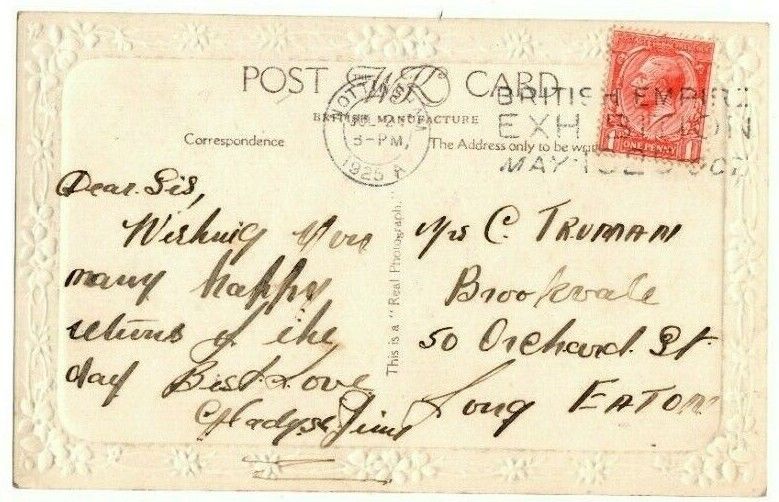 POST CARD
BRITISH MANUFACTURE
NOTTINGHAM
JUL
3-PM
1925
BRITISH EMPIRE
EXHIBITION
MAY OCT
ONE PENNY
Correspondence
The Address only to be
This is a "Real Photograph."
Dear Sis,
Wishing you
many happy
returns of the
day Best Love
Gladys & Jim
Mrs C. TRUMAN
Brookvale
50 Orchard St
Long EATON